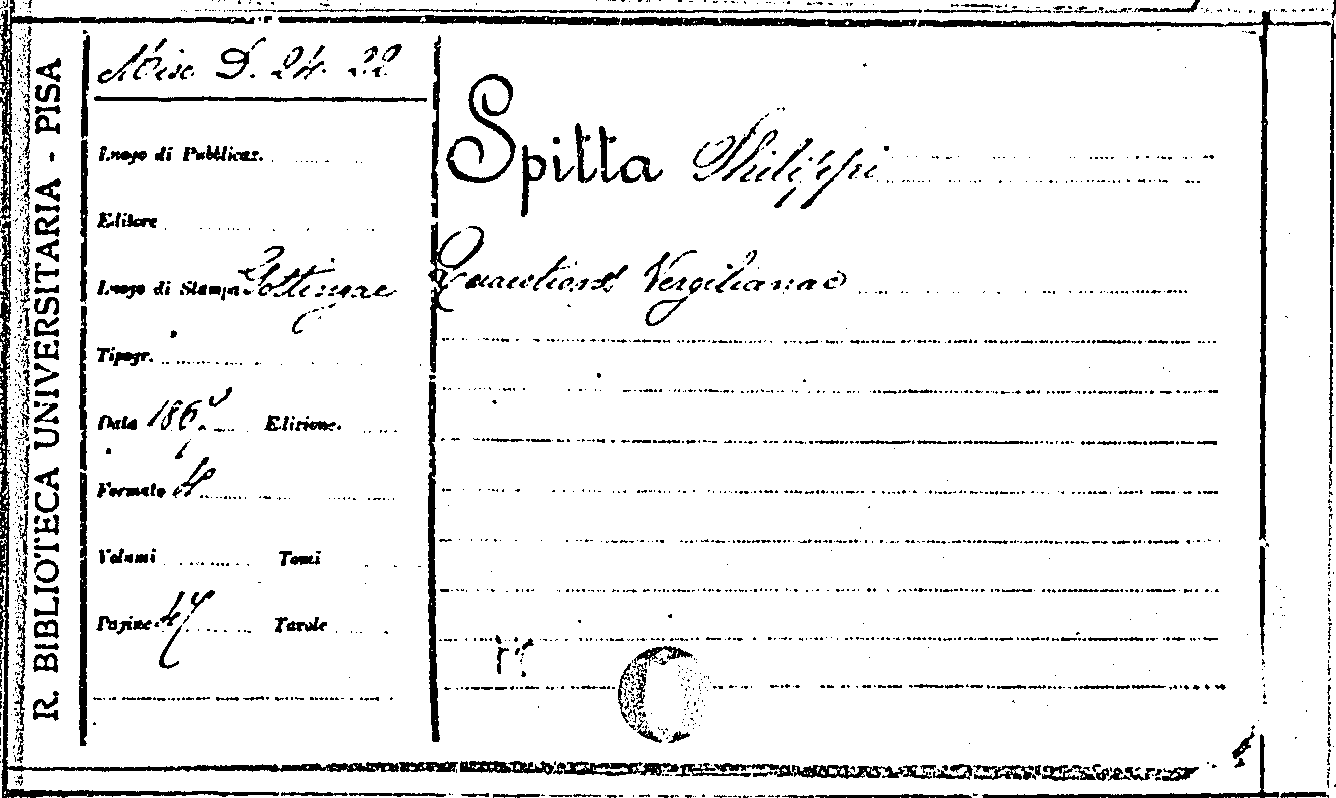 R. BIBLIOTECA UNIVERSITARIA - PISA
Misc D. 24. 22
Luogo di Pubblicaz.
Editore
Luogo di Stampa Gottingae
Tipogr.
Data 186 Edizione.
Formato 4
Volumi Tomi
Pagine 47 Tavole
Spitta Philippi
Quaestiones Vergilianae